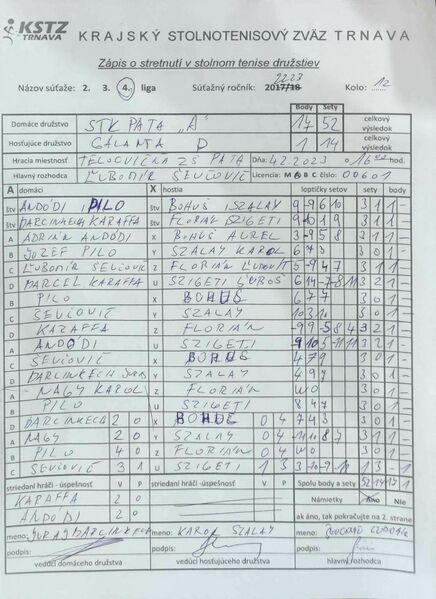 KSTZ TRNAVA KRAJSKÝ STOLNOTENISOVÝ ZVÄZ TRNAVA
Zápis o stretnutí v stolnom tenise družstiev
Názov súťaže: 2. 3. 4. liga Súťažný ročník: 2017/18 2223 Kolo: 12
Body Sety
Domáce družstvo STK PATA "A" 17 52 celkový výsledok
Hosťujúce družstvo GALANTA D 1 14 celkový výsledok
Hracia miestnosť TELOCVIČNA ZŠ PATA Dňa: 4.2.2023 o 16 00 hod.
Hlavný rozhodca ĽUBOMÍR ŠEVČOVIČ Licencia: M B C číslo: 00601
A domáci X hostia loptičky setov sety body
štv ANDÓDI PILO štv BOHUŠ SZALAY 9 -9 6 10 3 1 1 -
štv DARCINKECH KARAFFA štv FLORIÁN SZIGETI 3 1 1 -
A ADRIÁN ANDÓDI X BOHUŠ AUREL 3 -9 5 8 3 1 1 -
B JOZEF PILO Y SZALAY KAROL 6 7 5 3 0 1 -
C ĽUBOMÍR ŠEVČOVIČ Z FLORIÁN 5 -9 4 7 3 1 1 -
D MARCEL KARAFFA U SZIGETI ĽUBOŠ 3 2 1 -
B PILO X BOHUŠ 6 7 7 3 0 1 -
C ŠEVČOVIČ Y SZALAY 10 3 10 3 0 1 -
D KARAFFA Z FLORIÁN -9 9 -5 8 4 3 2 1 -
A ANDÓDI U SZIGETI 3 2 1 -
C ŠEVČOVIČ X BOHUŠ 4 7 9 3 0 1 -
D DARCINKECH Y SZALAY 4 9 7 3 0 1 -
A NAGY KAROL Z FLORIÁN WO 3 0 1 -
B PILO U SZIGETI 8 4 7 3 0 1 -
D DARCINKECH 2 0 X BOHUŠ 0 4 7 4 3 3 0 1 -
A NAGY 2 0 Y SZALAY 0 4 3 1 1 -
B PILO 4 0 Z FLORIÁN 0 4 WO 3 0 1 -
C ŠEVČOVIČ 3 1 U SZIGETI 1 3 1 3 - 1
striedaní hráči - úspešnosť V P striedaní hráči - úspešnosť V P Spolu body a sety 52 14 17 1
KARAFFA 2 0 Námietky Áno Nie
ANDÓDI 2 0 ak áno, tak pokračujte na 2. strane
meno: JURAJ DARCINKECH meno: KAROL SZALAY meno:
podpis: podpis: podpis:
vedúci domáceho družstva vedúci hosťujúceho družstva hlavný rozhodca